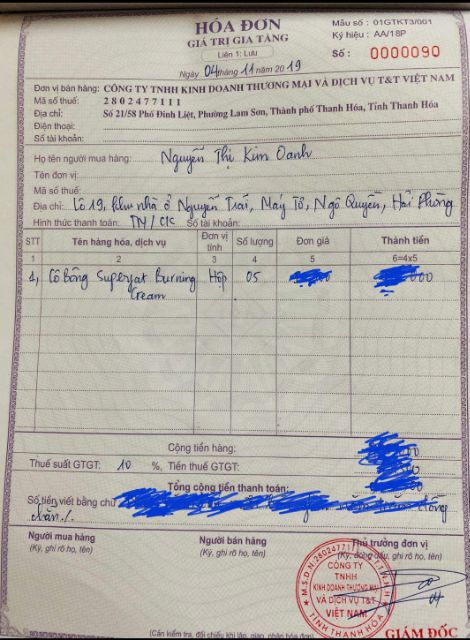 HÓA ĐƠN
GIÁ TRỊ GIA TĂNG
Liên 1: Lưu
Ngày 04 tháng 11 năm 2019
Mẫu số : 01GTKT3/001
Ký hiệu : AA/18P
Số : 0000090
Đơn vị bán hàng: CÔNG TY TNHH KINH DOANH THƯƠNG MẠI VÀ DỊCH VỤ T&T VIỆT NAM
Mã số thuế: 2802477111
Địa chỉ: Số 21/58 Phố Đinh Liệt, Phường Lam Sơn, Thành phố Thanh Hóa, Tỉnh Thanh Hóa
Điện thoại:
Số tài khoản:
Họ tên người mua hàng: Nguyễn Thị Kim Oanh
Tên đơn vị:
Mã số thuế:
Địa chỉ: Lô 19, khu nhà ở Nguyễn Trãi, Máy Tơ, Ngô Quyền, Hải Phòng
Hình thức thanh toán: TM/CK Số tài khoản:
STT Tên hàng hóa, dịch vụ Đơn vị tính Số lượng Đơn giá Thành tiền
1 2 3 4 5 6=4x5
1, Cô Bông Superfat Burning Cream Hộp 05
Cộng tiền hàng:
Thuế suất GTGT: 10 %, Tiền thuế GTGT:
Tổng cộng tiền thanh toán:
Số tiền viết bằng chữ
đồng
chẵn./.
Người mua hàng Người bán hàng Thủ trưởng đơn vị
(Ký, ghi rõ họ, tên) (Ký, ghi rõ họ, tên) (Ký, đóng dấu, ghi rõ họ, tên)
M.S.D.N: 2802477111
CÔNG TY
TNHH
KINH DOANH THƯƠNG MẠI
VÀ DỊCH VỤ T&T
VIỆT NAM
TỈNH THANH HÓA
GIÁM ĐỐC
(Cần kiểm tra, đối chiếu khi lập, giao, nhận hóa đơn)